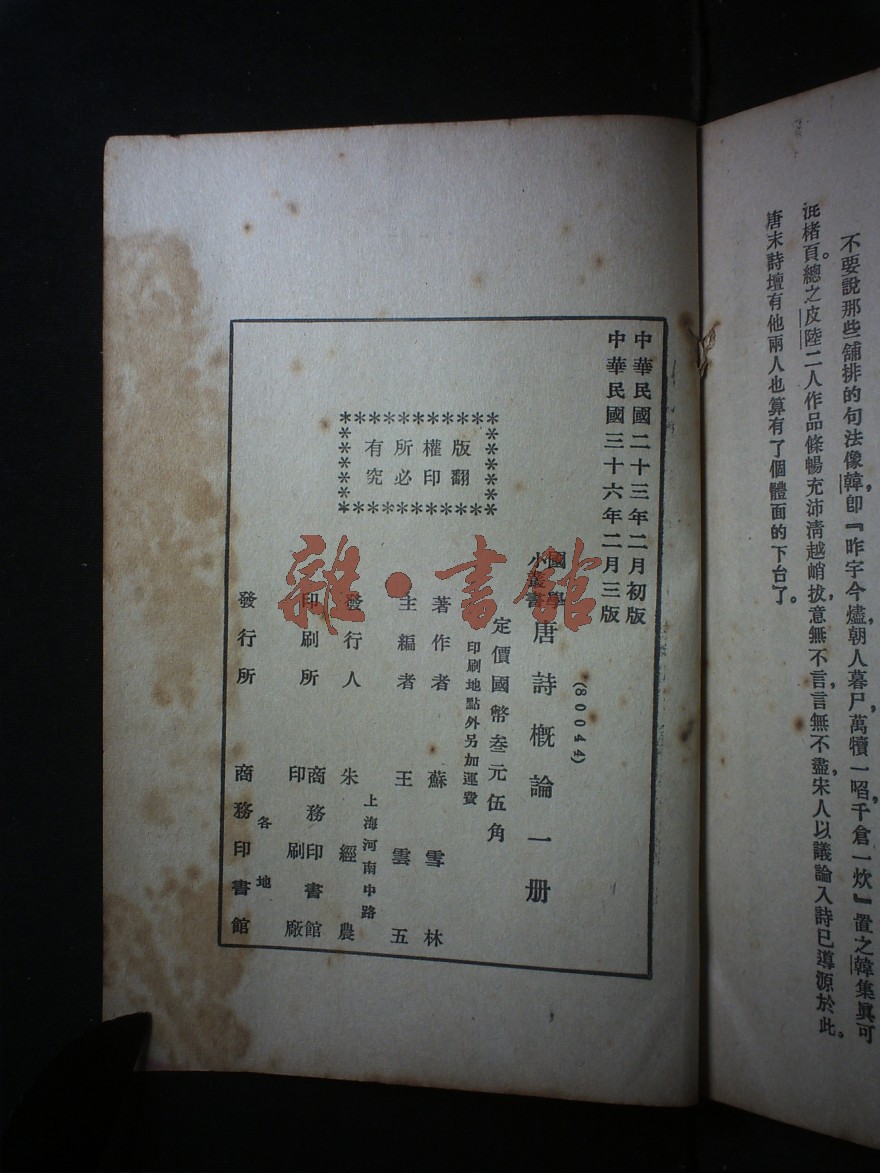 不要說那些舖排的句法像韓卽『昨宇今爐，朝人暮尸，萬犢一㗖，千倉一炊』置之韓集眞可
混楮頁。總之皮陸二人作品條暢充沛，淸越峭拔，意無不言，言無不盡，宋人以議論入詩已導源於此。
唐末詩壇有他兩人也算有了個體面的下台了。
中華民國二十三年二月初版
中華民國三十六年二月三版
(80044)
國學小叢書 唐詩概論一册
定價國幣叁元伍角
印刷地點外另加運費
版權所有
翻印必究
著作者 蘇雪林
主編者 王雲五
發行人 朱經農
上海河南中路
印刷所 商務印書館印刷廠
發行所 各地 商務印書館
雜·書館